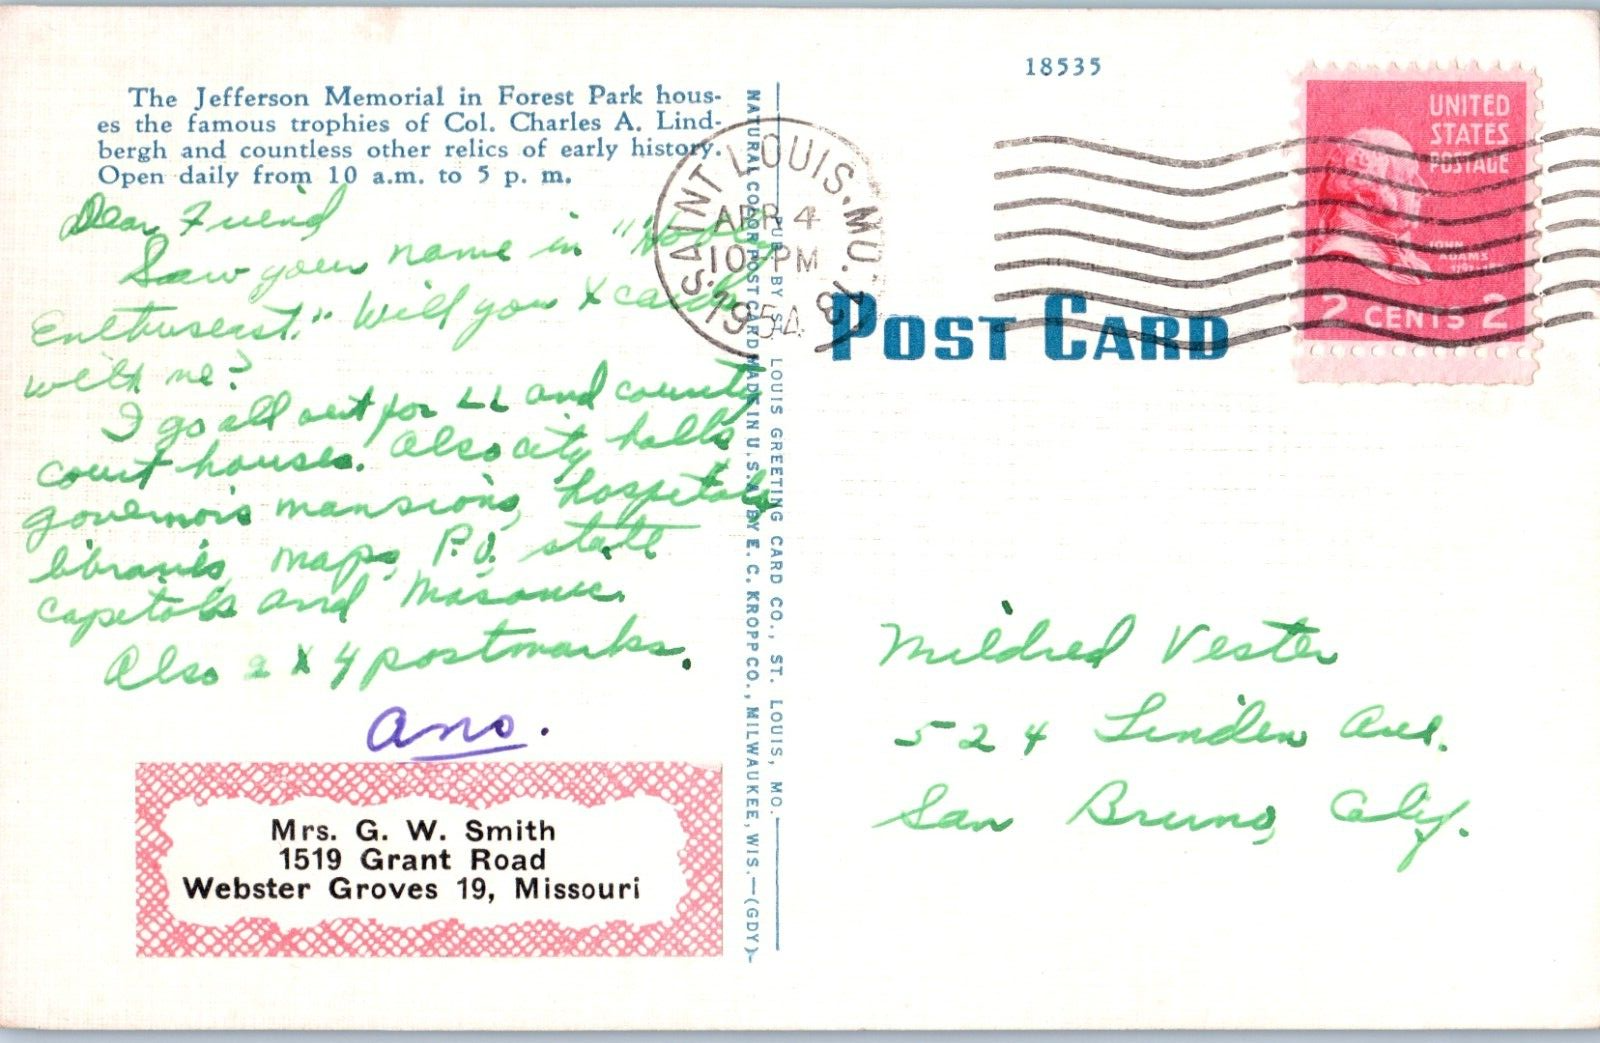 18535
The Jefferson Memorial in Forest Park hous-
es the famous trophies of Col. Charles A. Lind-
bergh and countless other relics of early history.
Open daily from 10 a.m. to 5 p. m.
Dear Friend
Saw your name in "Hobby
Enthusiast." Will you X cards
with me?
I go all out for LL and county
court houses. Also city halls
governor's mansions, hospitals
libraries, maps, P.O. state
capitols and Masonic.
Also 2 X 4 postmarks.
Ans.
Mrs. G. W. Smith
1519 Grant Road
Webster Groves 19, Missouri
NATURAL COLOR POST CARD MADE IN U.S.A. BY E. C. KROPP CO., MILWAUKEE, WIS.—(GDY)
PUB. BY ST. LOUIS GREETING CARD CO., ST. LOUIS, MO.
SAINT LOUIS, MO.
APR 4
10 PM
1954
POST CARD
UNITED
STATES
POSTAGE
JOHN
ADAMS
2 CENTS 2
Mildred Vester
524 Linden Ave.
San Bruno, Calif.